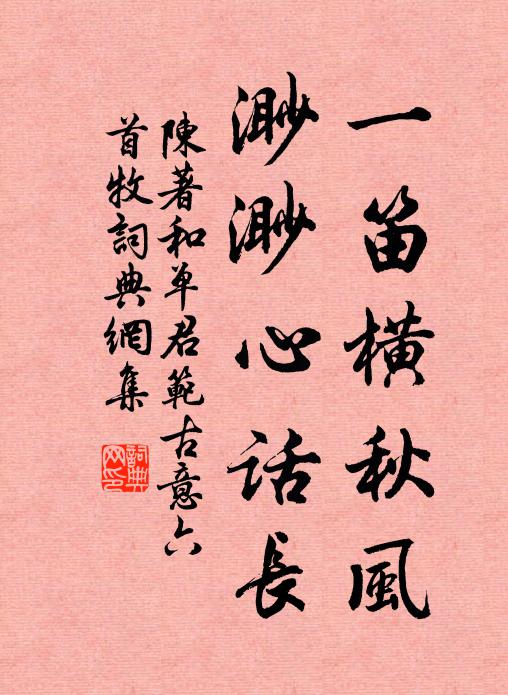 一笛橫秋風
渺渺心话長
陳著和单君範古意六
首牧詞典網集
詞典
网印